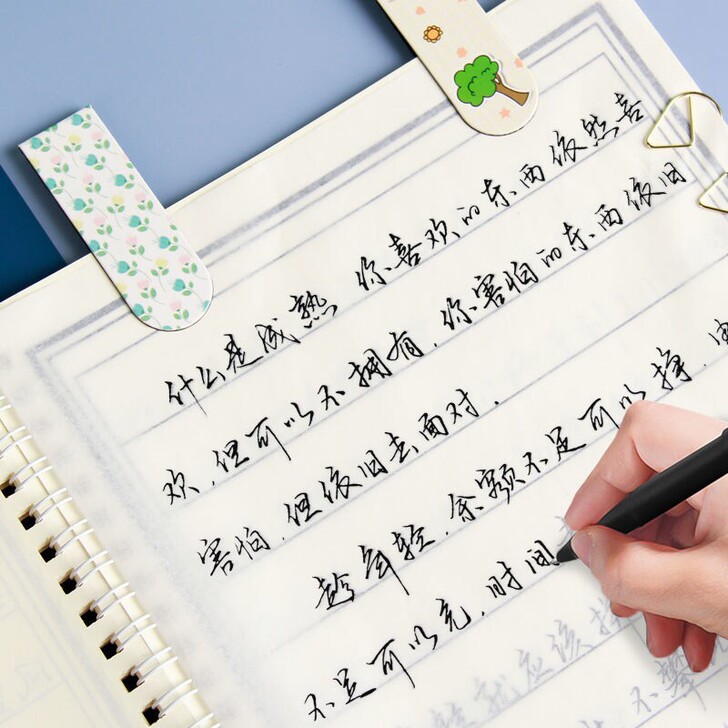 什么是成熟 你喜欢的东西依然喜
欢，但可以不拥有，你害怕的东西依旧
害怕，但依旧去面对，
趁年轻，余额不足可以挣，
不足可以充，时间
就应该
不